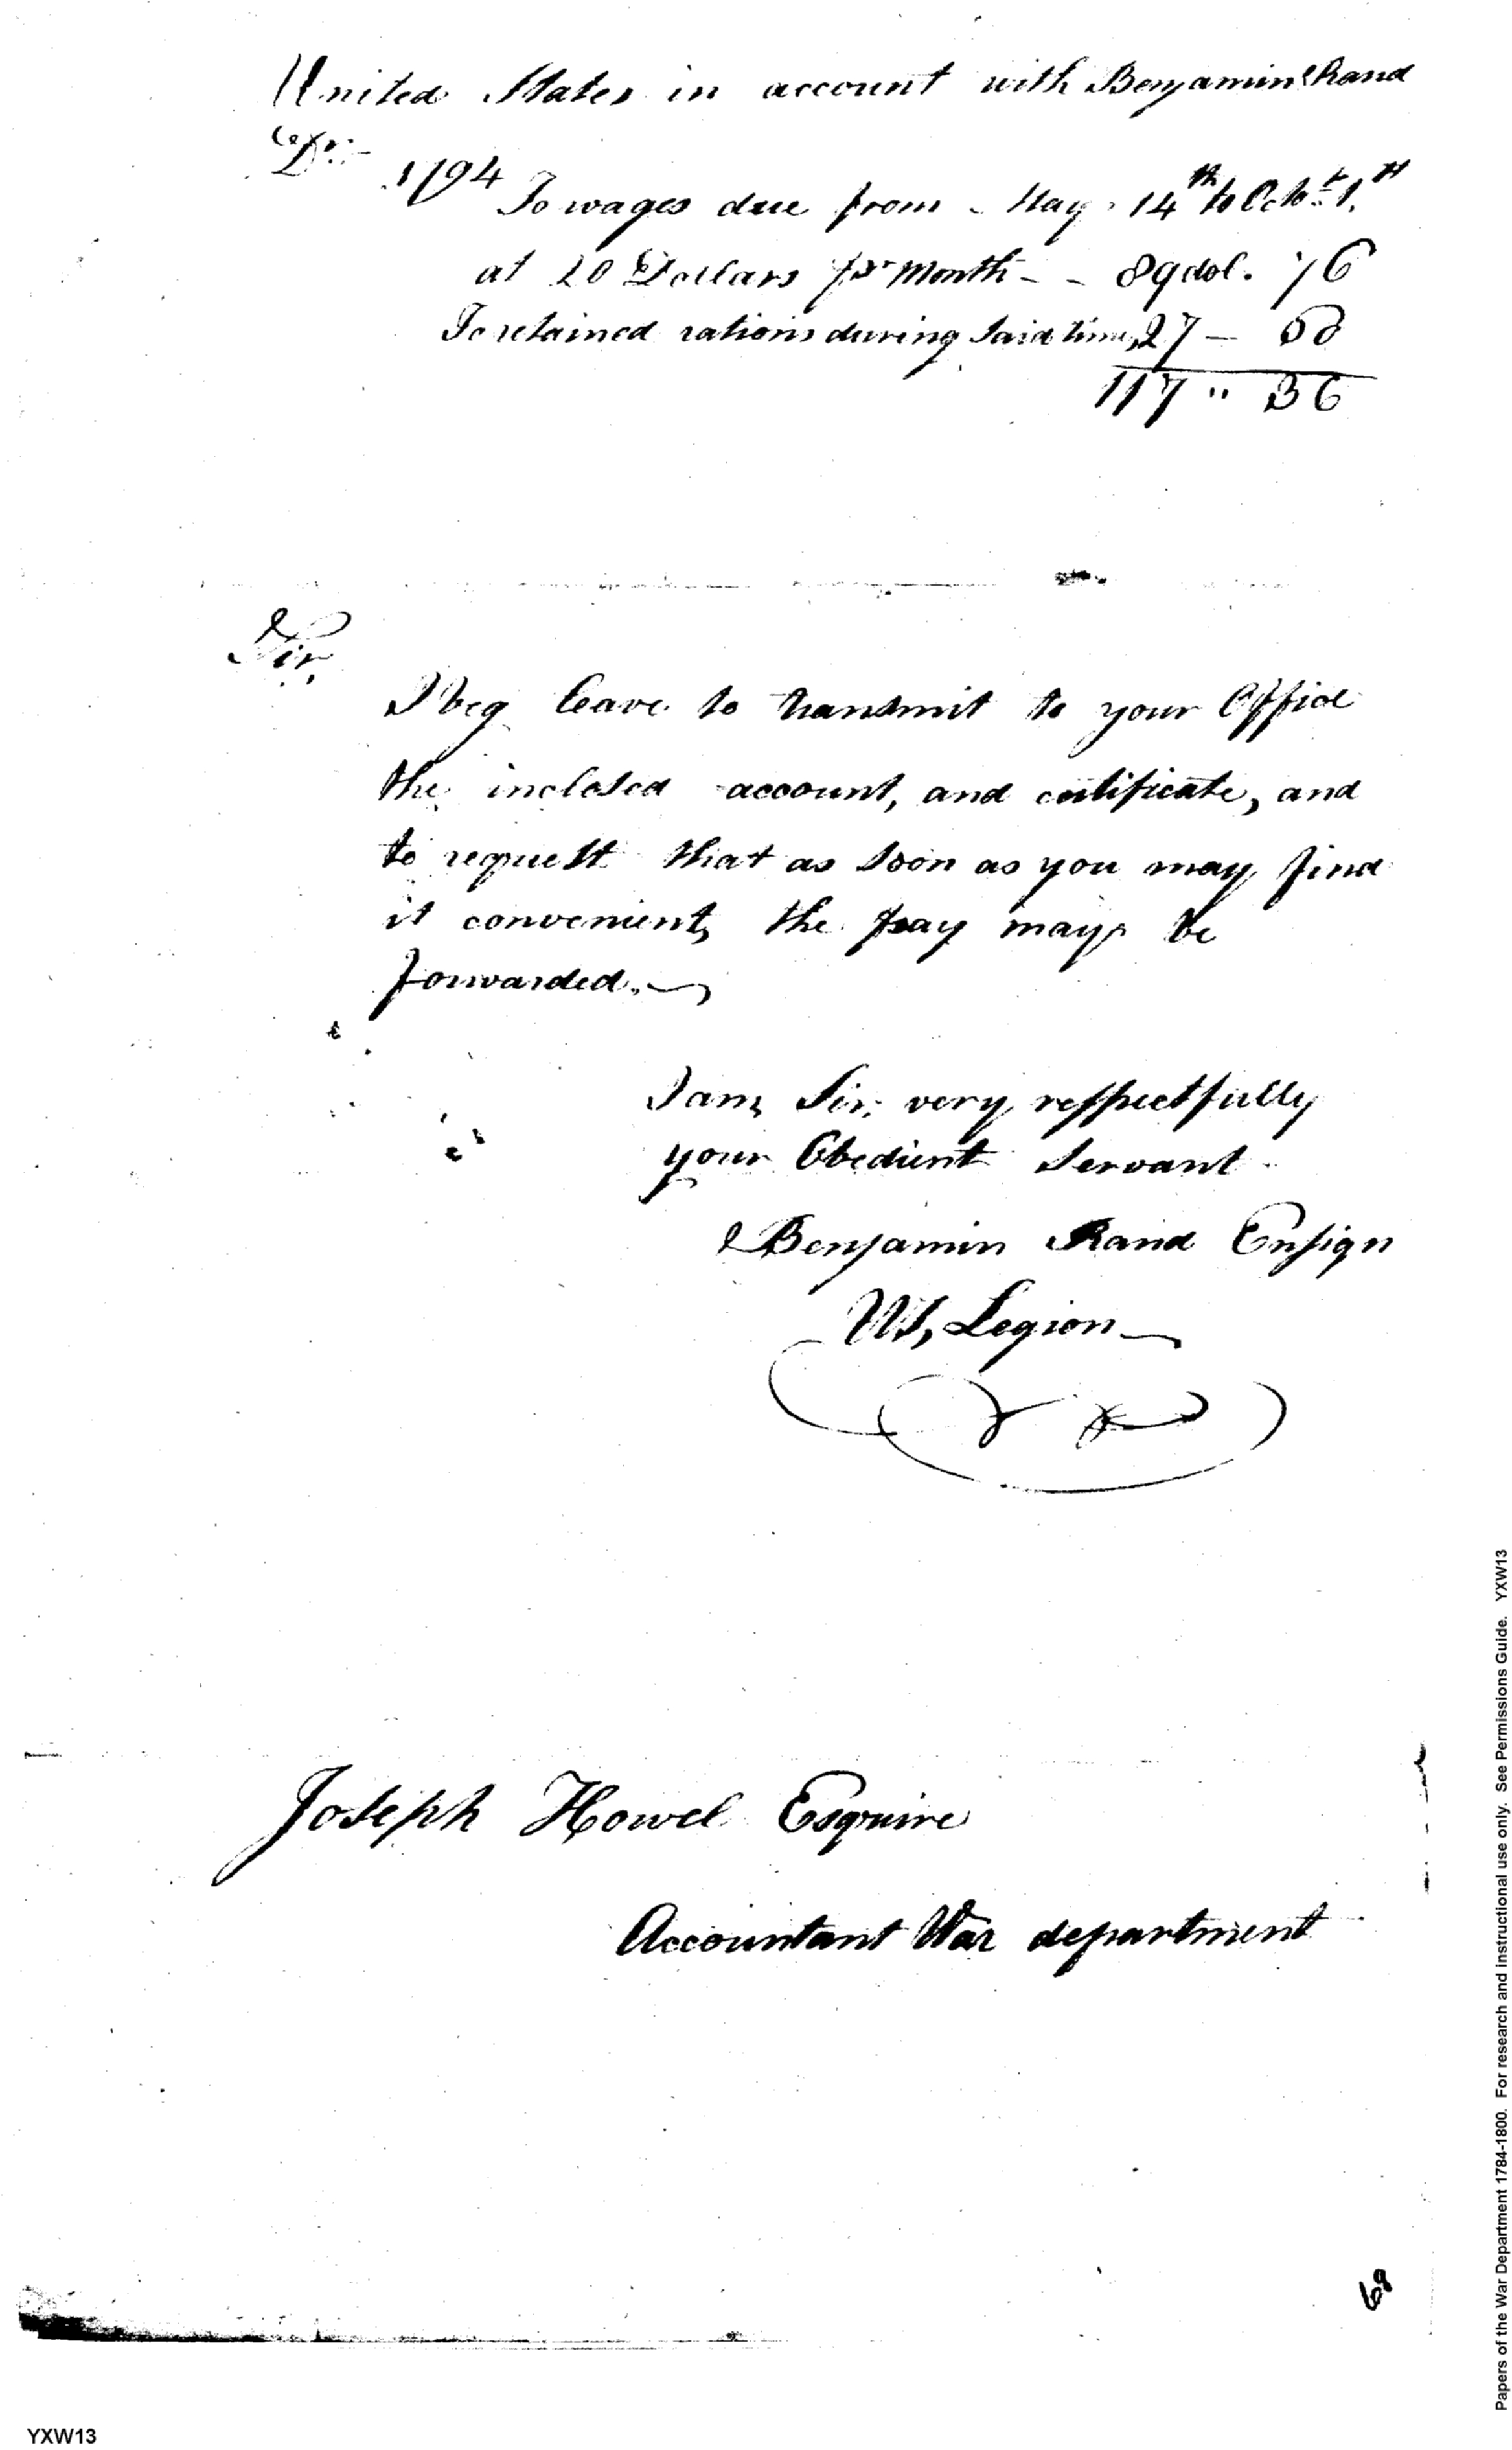 United States in account with Benjamin Rand
Dr.
1794 To wages due from - May 14th to Octr. 1st
at 20 Dollars pr Month - - 89 dol. 76
To retained rations during said time, 27 — 60
117 " 36
Sir,
I beg leave to transmit to your Office
the inclosed account, and certificate, and
to request that as soon as you may find
it convenient, the pay may be
forwarded.
I am, Sir, very respectfully
your Obedient Servant
Benjamin Rand Ensign
US, Legion
Joseph Howel Esquire
Accountant War department
68
YXW13
Papers of the War Department 1784-1800. For research and instructional use only. See Permissions Guide. YXW13